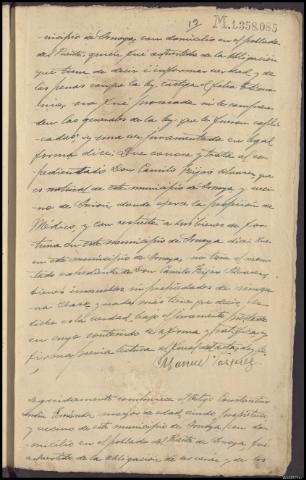 12 M.1.358.085
nicipio de Arnoya, con domicilio en el poblado
del Puente, quien fué advertido de la obligación
que tiene de decir é informar verdad y de
las penas conque la ley castiga el falso testimo
nio, no fué procesado ni le compren
den las generales de la ley que le fueron expli
cadas; y una vez juramentado en legal
forma dice: Que conoce y trata al ex
pedientado Don Camilo Feijóo Alvarez, que
es natural de este municipio de Arnoya y veci
no de donde ejerce la profesión de
Médico, y con respecto a los bienes de for
tuna en este municipio de Arnoya dice que
en este municipio de Arnoya, no tiene el men
tado expedientado Don Camilo Feijóo Alvarez,
bienes inmuebles ni propiedades de ningu
na clase, y nada más tiene que decir, lo
dicho es la verdad bajo el juramento prestado
en cuyo contenido se afirma y ratifica y
firma previa lectura
Manuel Vazquez
Seguidamente comparece el testigo Constantino
mayor de edad, viudo, propietario
y vecino de este municipio de Arnoya, con do
micilio en el poblado del Puente de Arnoya, fué
advertido de la obligación de ser veraz y de las